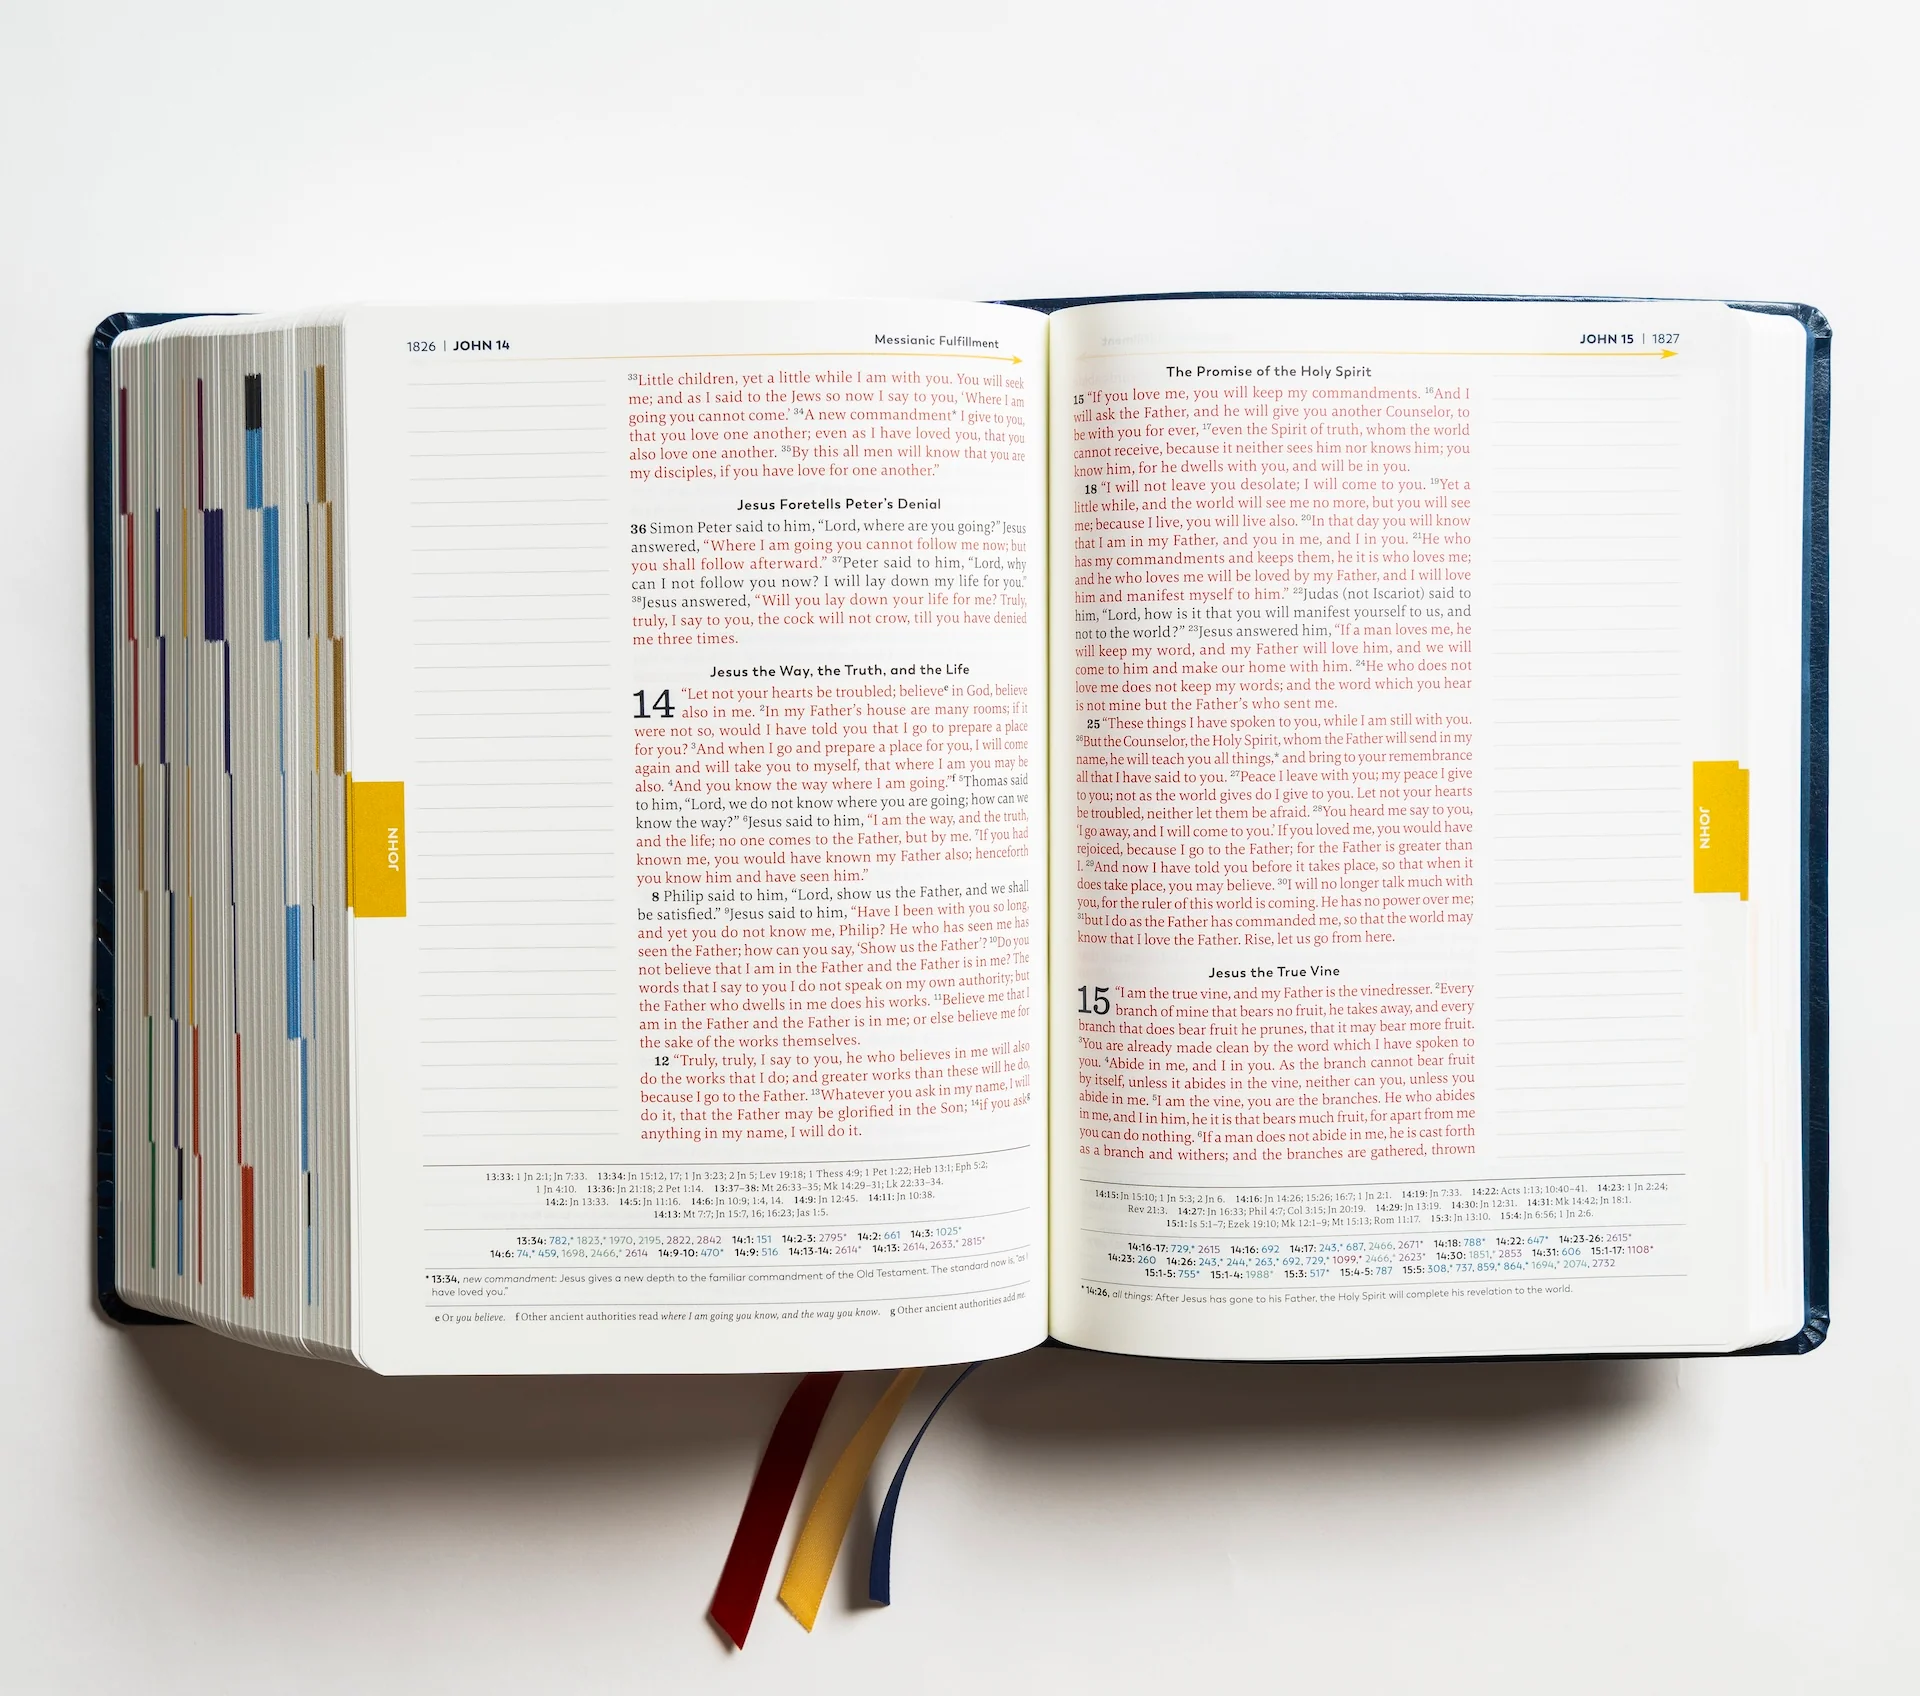 1826 | JOHN 14
Messianic Fulfillment
33Little children, yet a little while I am with you. You will seek
me; and as I said to the Jews so now I say to you, ‘Where I am
going you cannot come.’ 34A new commandment* I give to you,
that you love one another; even as I have loved you, that you
also love one another. 35By this all men will know that you are
my disciples, if you have love for one another.”
Jesus Foretells Peter’s Denial
36 Simon Peter said to him, “Lord, where are you going?” Jesus
answered, “Where I am going you cannot follow me now; but
you shall follow afterward.” 37Peter said to him, “Lord, why
can I not follow you now? I will lay down my life for you.”
38Jesus answered, “Will you lay down your life for me? Truly,
truly, I say to you, the cock will not crow, till you have denied
me three times.
Jesus the Way, the Truth, and the Life
14 “Let not your hearts be troubled; believee in God, believe
also in me. 2In my Father’s house are many rooms; if it
were not so, would I have told you that I go to prepare a place
for you? 3And when I go and prepare a place for you, I will come
again and will take you to myself, that where I am you may be
also. 4And you know the way where I am going.”f 5Thomas said
to him, “Lord, we do not know where you are going; how can we
know the way?” 6Jesus said to him, “I am the way, and the truth,
and the life; no one comes to the Father, but by me. 7If you had
known me, you would have known my Father also; henceforth
you know him and have seen him.”
8 Philip said to him, “Lord, show us the Father, and we shall
be satisfied.” 9Jesus said to him, “Have I been with you so long,
and yet you do not know me, Philip? He who has seen me has
seen the Father; how can you say, ‘Show us the Father’? 10Do you
not believe that I am in the Father and the Father is in me? The
words that I say to you I do not speak on my own authority; but
the Father who dwells in me does his works. 11Believe me that I
am in the Father and the Father is in me; or else believe me for
the sake of the works themselves.
12 “Truly, truly, I say to you, he who believes in me will also
do the works that I do; and greater works than these will he do,
because I go to the Father. 13Whatever you ask in my name, I will
do it, that the Father may be glorified in the Son; 14if you askg
anything in my name, I will do it.
13:33: 1 Jn 2:1; Jn 7:33. 13:34: Jn 15:12, 17; 1 Jn 3:23; 2 Jn 5; Lev 19:18; 1 Thess 4:9; 1 Pet 1:22; Heb 13:1; Eph 5:2;
1 Jn 4:10. 13:36: Jn 21:18; 2 Pet 1:14. 13:37–38: Mt 26:33–35; Mk 14:29–31; Lk 22:33–34.
14:2: Jn 13:33. 14:5: Jn 11:16. 14:6: Jn 10:9; 1:4, 14. 14:9: Jn 12:45. 14:11: Jn 10:38.
14:13: Mt 7:7; Jn 15:7, 16; 16:23; Jas 1:5.
13:34: 782,* 1823,* 1970, 2195, 2822, 2842 14:1: 151 14:2-3: 2795* 14:2: 661 14:3: 1025*
14:6: 74,* 459, 1698, 2466,* 2614 14:9-10: 470* 14:9: 516 14:13-14: 2614* 14:13: 2614, 2633,* 2815*
* 13:34, new commandment: Jesus gives a new depth to the familiar commandment of the Old Testament. The standard now is, “as I
have loved you.”
e Or you believe. f Other ancient authorities read where I am going you know, and the way you know. g Other ancient authorities add me.
JOHN
JOHN 15 | 1827
The Promise of the Holy Spirit
15 “If you love me, you will keep my commandments. 16And I
will ask the Father, and he will give you another Counselor, to
be with you for ever, 17even the Spirit of truth, whom the world
cannot receive, because it neither sees him nor knows him; you
know him, for he dwells with you, and will be in you.
18 “I will not leave you desolate; I will come to you. 19Yet a
little while, and the world will see me no more, but you will see
me; because I live, you will live also. 20In that day you will know
that I am in my Father, and you in me, and I in you. 21He who
has my commandments and keeps them, he it is who loves me;
and he who loves me will be loved by my Father, and I will love
him and manifest myself to him.” 22Judas (not Iscariot) said to
him, “Lord, how is it that you will manifest yourself to us, and
not to the world?” 23Jesus answered him, “If a man loves me, he
will keep my word, and my Father will love him, and we will
come to him and make our home with him. 24He who does not
love me does not keep my words; and the word which you hear
is not mine but the Father’s who sent me.
25 “These things I have spoken to you, while I am still with you.
26But the Counselor, the Holy Spirit, whom the Father will send in my
name, he will teach you all things,* and bring to your remembrance
all that I have said to you. 27Peace I leave with you; my peace I give
to you; not as the world gives do I give to you. Let not your hearts
be troubled, neither let them be afraid. 28You heard me say to you,
‘I go away, and I will come to you.’ If you loved me, you would have
rejoiced, because I go to the Father; for the Father is greater than
I. 29And now I have told you before it takes place, so that when it
does take place, you may believe. 30I will no longer talk much with
you, for the ruler of this world is coming. He has no power over me;
31but I do as the Father has commanded me, so that the world may
know that I love the Father. Rise, let us go from here.
Jesus the True Vine
15 “I am the true vine, and my Father is the vinedresser. 2Every
branch of mine that bears no fruit, he takes away, and every
branch that does bear fruit he prunes, that it may bear more fruit.
3You are already made clean by the word which I have spoken to
you. 4Abide in me, and I in you. As the branch cannot bear fruit
by itself, unless it abides in the vine, neither can you, unless you
abide in me. 5I am the vine, you are the branches. He who abides
in me, and I in him, he it is that bears much fruit, for apart from me
you can do nothing. 6If a man does not abide in me, he is cast forth
as a branch and withers; and the branches are gathered, thrown
14:15: Jn 15:10; 1 Jn 5:3; 2 Jn 6. 14:16: Jn 14:26; 15:26; 16:7; 1 Jn 2:1. 14:19: Jn 7:33. 14:22: Acts 1:13; 10:40–41. 14:23: 1 Jn 2:24;
Rev 21:3. 14:27: Jn 16:33; Phil 4:7; Col 3:15; Jn 20:19. 14:29: Jn 13:19. 14:30: Jn 12:31. 14:31: Mk 14:42; Jn 18:1.
15:1: Is 5:1–7; Ezek 19:10; Mk 12:1–9; Mt 15:13; Rom 11:17. 15:3: Jn 13:10. 15:4: Jn 6:56; 1 Jn 2:6.
14:16-17: 729,* 2615 14:16: 692 14:17: 243,* 687, 2466, 2671* 14:18: 788* 14:22: 647* 14:23-26: 2615*
14:23: 260 14:26: 243,* 244,* 263,* 692, 729,* 1099,* 2466,* 2623* 14:30: 1851,* 2853 14:31: 606 15:1-17: 1108*
15:1-5: 755* 15:1-4: 1988* 15:3: 517* 15:4-5: 787 15:5: 308,* 737, 859,* 864,* 1694,* 2074, 2732
* 14:26, all things: After Jesus has gone to his Father, the Holy Spirit will complete his revelation to the world.
JOHN